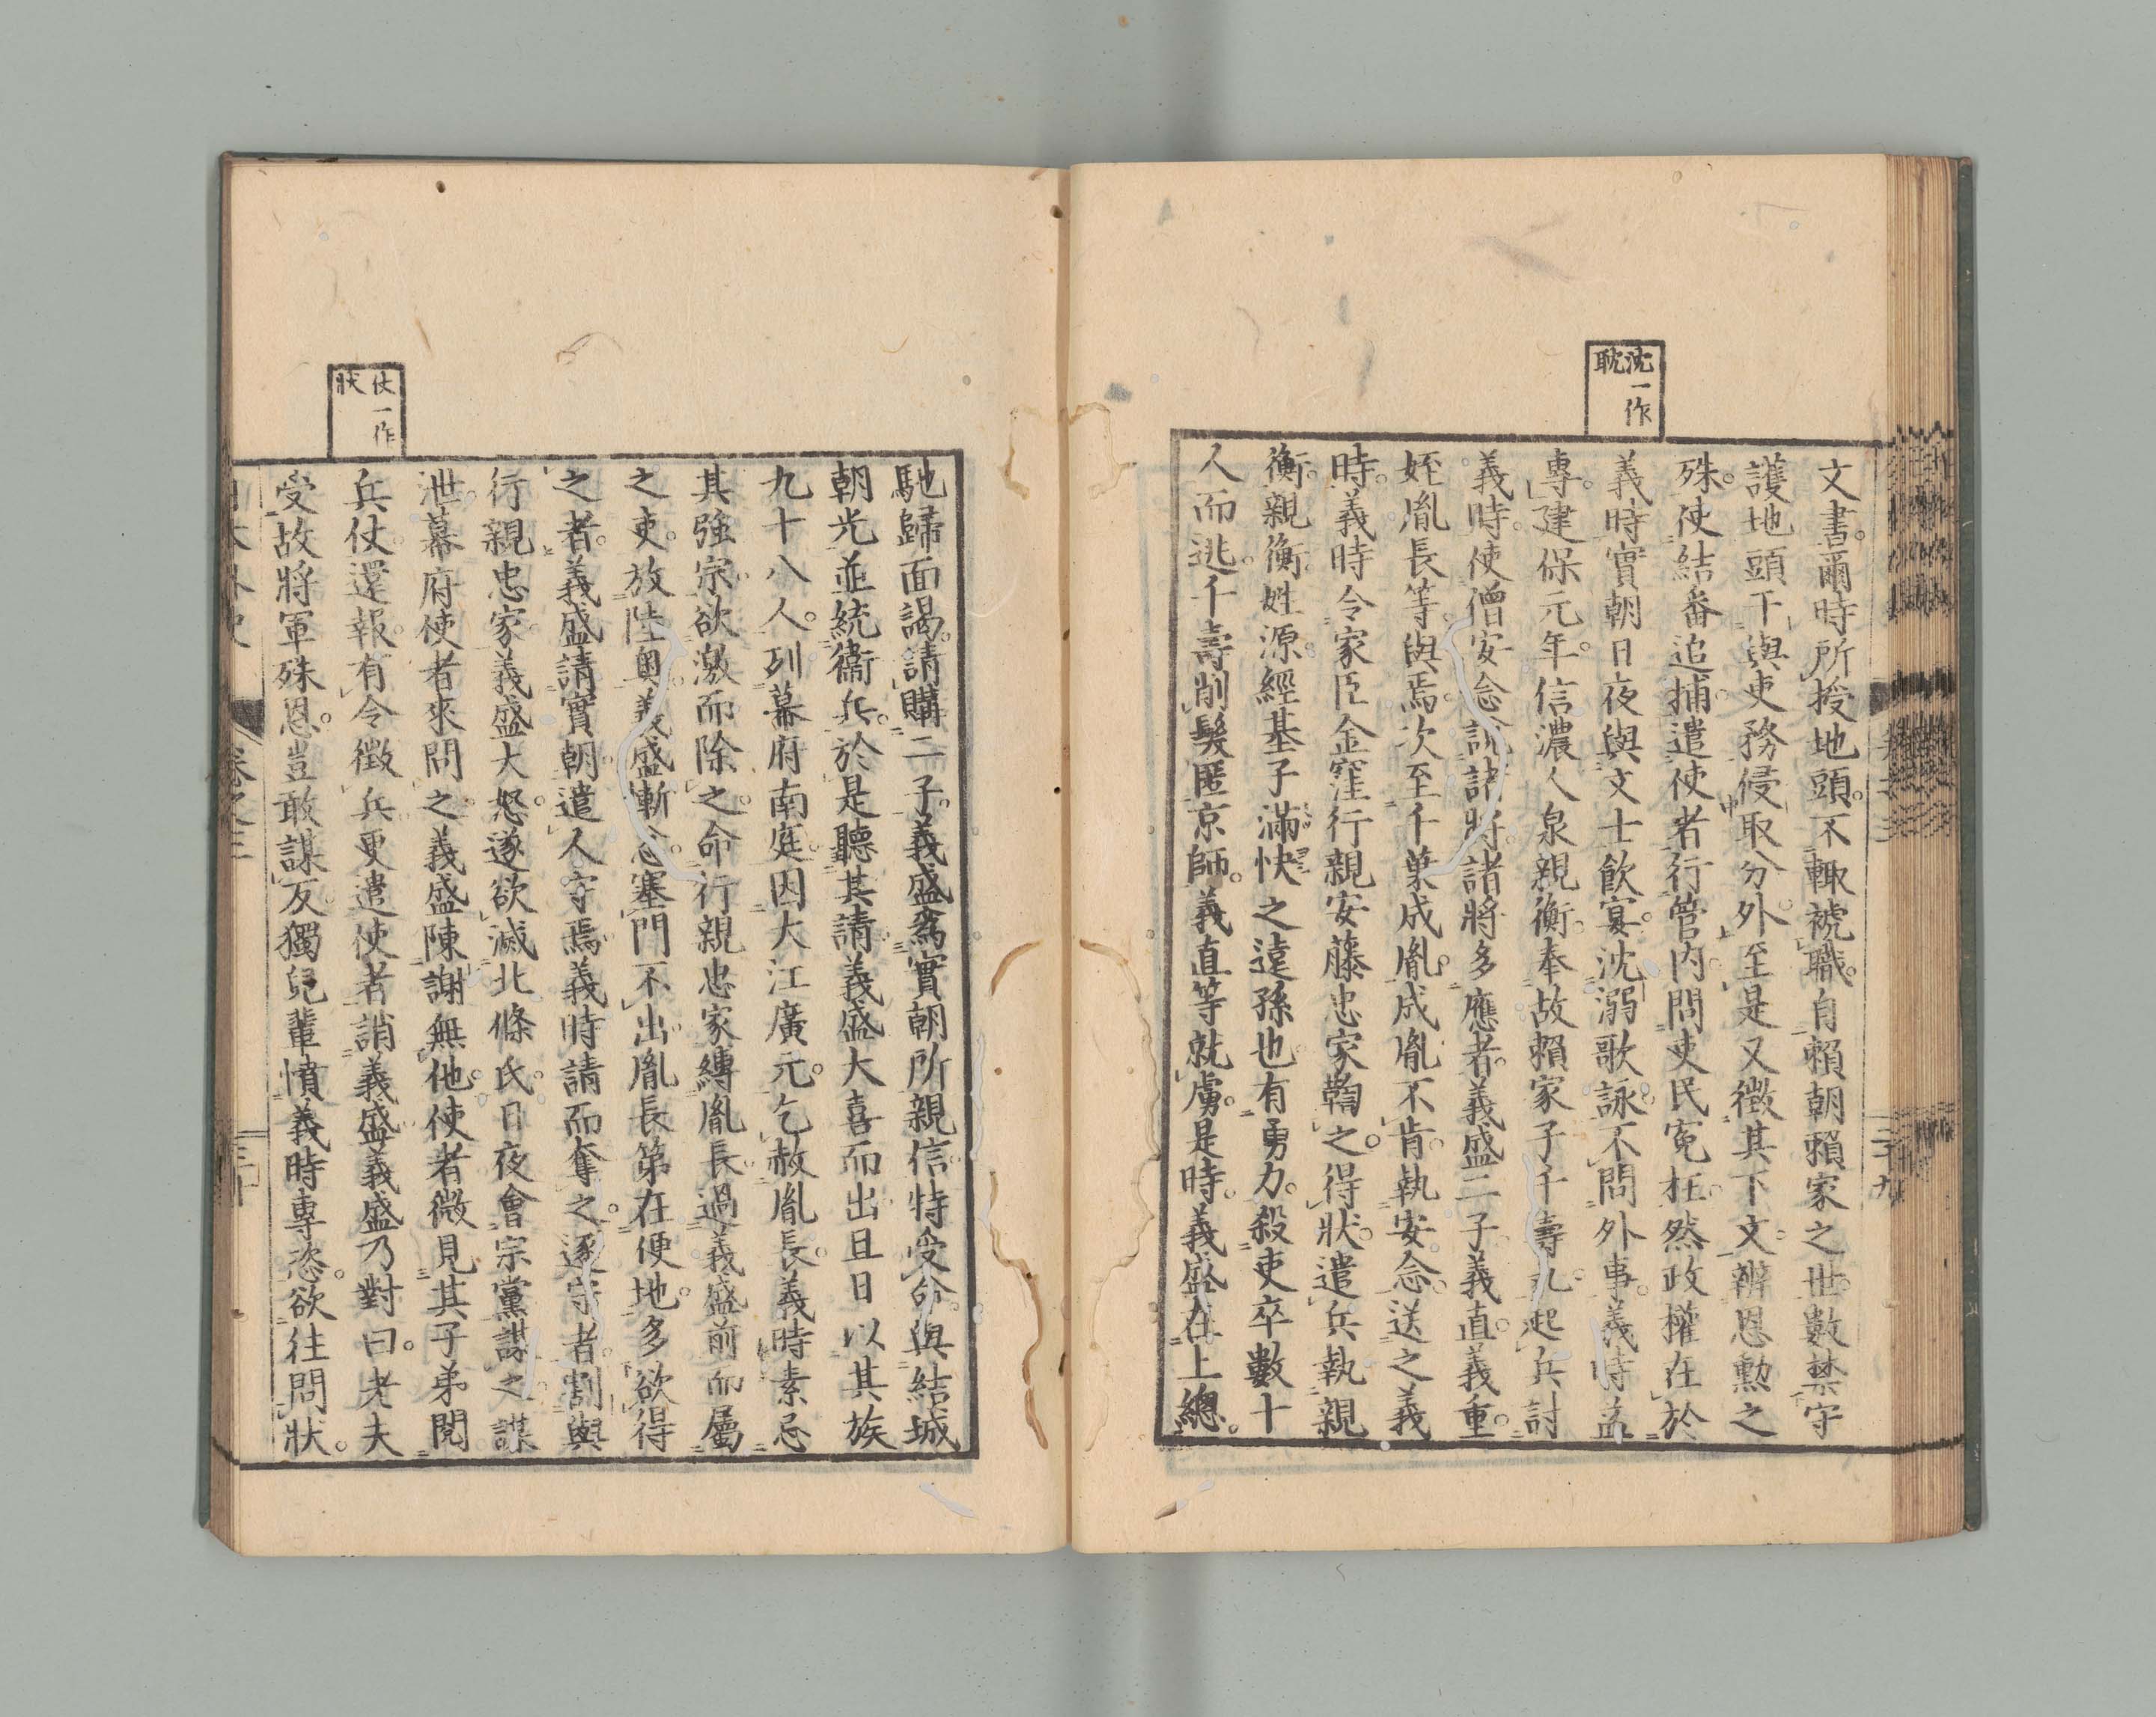 沈一作
耽
文書。爾時所授地頭。不輙褫職。自賴朝賴家之世。數禁守
護地頭干與吏務侵取分外。至是又徵其下文。辨恩勳之
殊。使結番追捕。遣使者行管内。問吏民冤枉。然政權在於
義時。實朝日夜與文士飲宴。沈溺歌詠。不問外事。義時益
專。建保元年。信濃人泉親衡。奉故賴家子千壽丸。起兵討
義時。使僧安念說諸將。諸將多應者。義盛二子義直。義重。
姪胤長等。與焉。次至千葉成胤。成胤不肯。執安念。送之義
時。義時令家臣金窪行親安藤忠家鞫之。得狀。遣兵執親
衡。親衡姓源。經基子滿快之遠孫也。有勇力。殺吏卒數十
人而逃。千壽削髮匿京師。義直等就虜。是時。義盛在上總。
仗一作
狀
馳歸面謁。請購二子。義盛爲實朝所親信。特受命。與結城
朝光並統衞兵。於是聽其請。義盛大喜而出。旦日以其族
九十八人。列幕府南庭。因大江廣元。乞赦胤長。義時素忌
其強宗。欲激而除之。命行親忠家縛胤長。過義盛前而屬
之吏。放陸奧。義盛慚忿。塞門不出。胤長第在便地。多欲得
之者。義盛請實朝遣人守焉。義時請而奪之。逐守者。割與
行親忠家。義盛大怒。遂欲滅北條氏。日夜會宗黨謀之。謀
泄。幕府使者來問之。義盛陳謝無他。使者微見其子弟閱
兵仗。還報。有令徵兵。更遣使者誚義盛。義盛乃對曰。老夫
受故將軍殊恩。豈敢謀反。獨兒輩憤義時專恣。欲往問狀。
卷之三